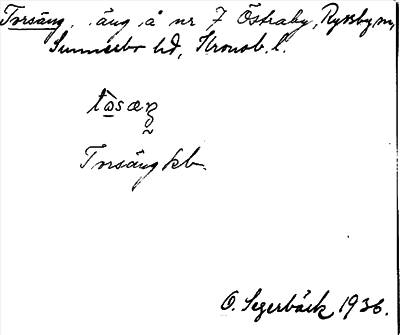 Torsäng, äng å nr 7 Östraby, Ryssby sn,
Sunnerbo hd, Kronob. l.
Torsäng kb.
O. Segerbäck 1936.